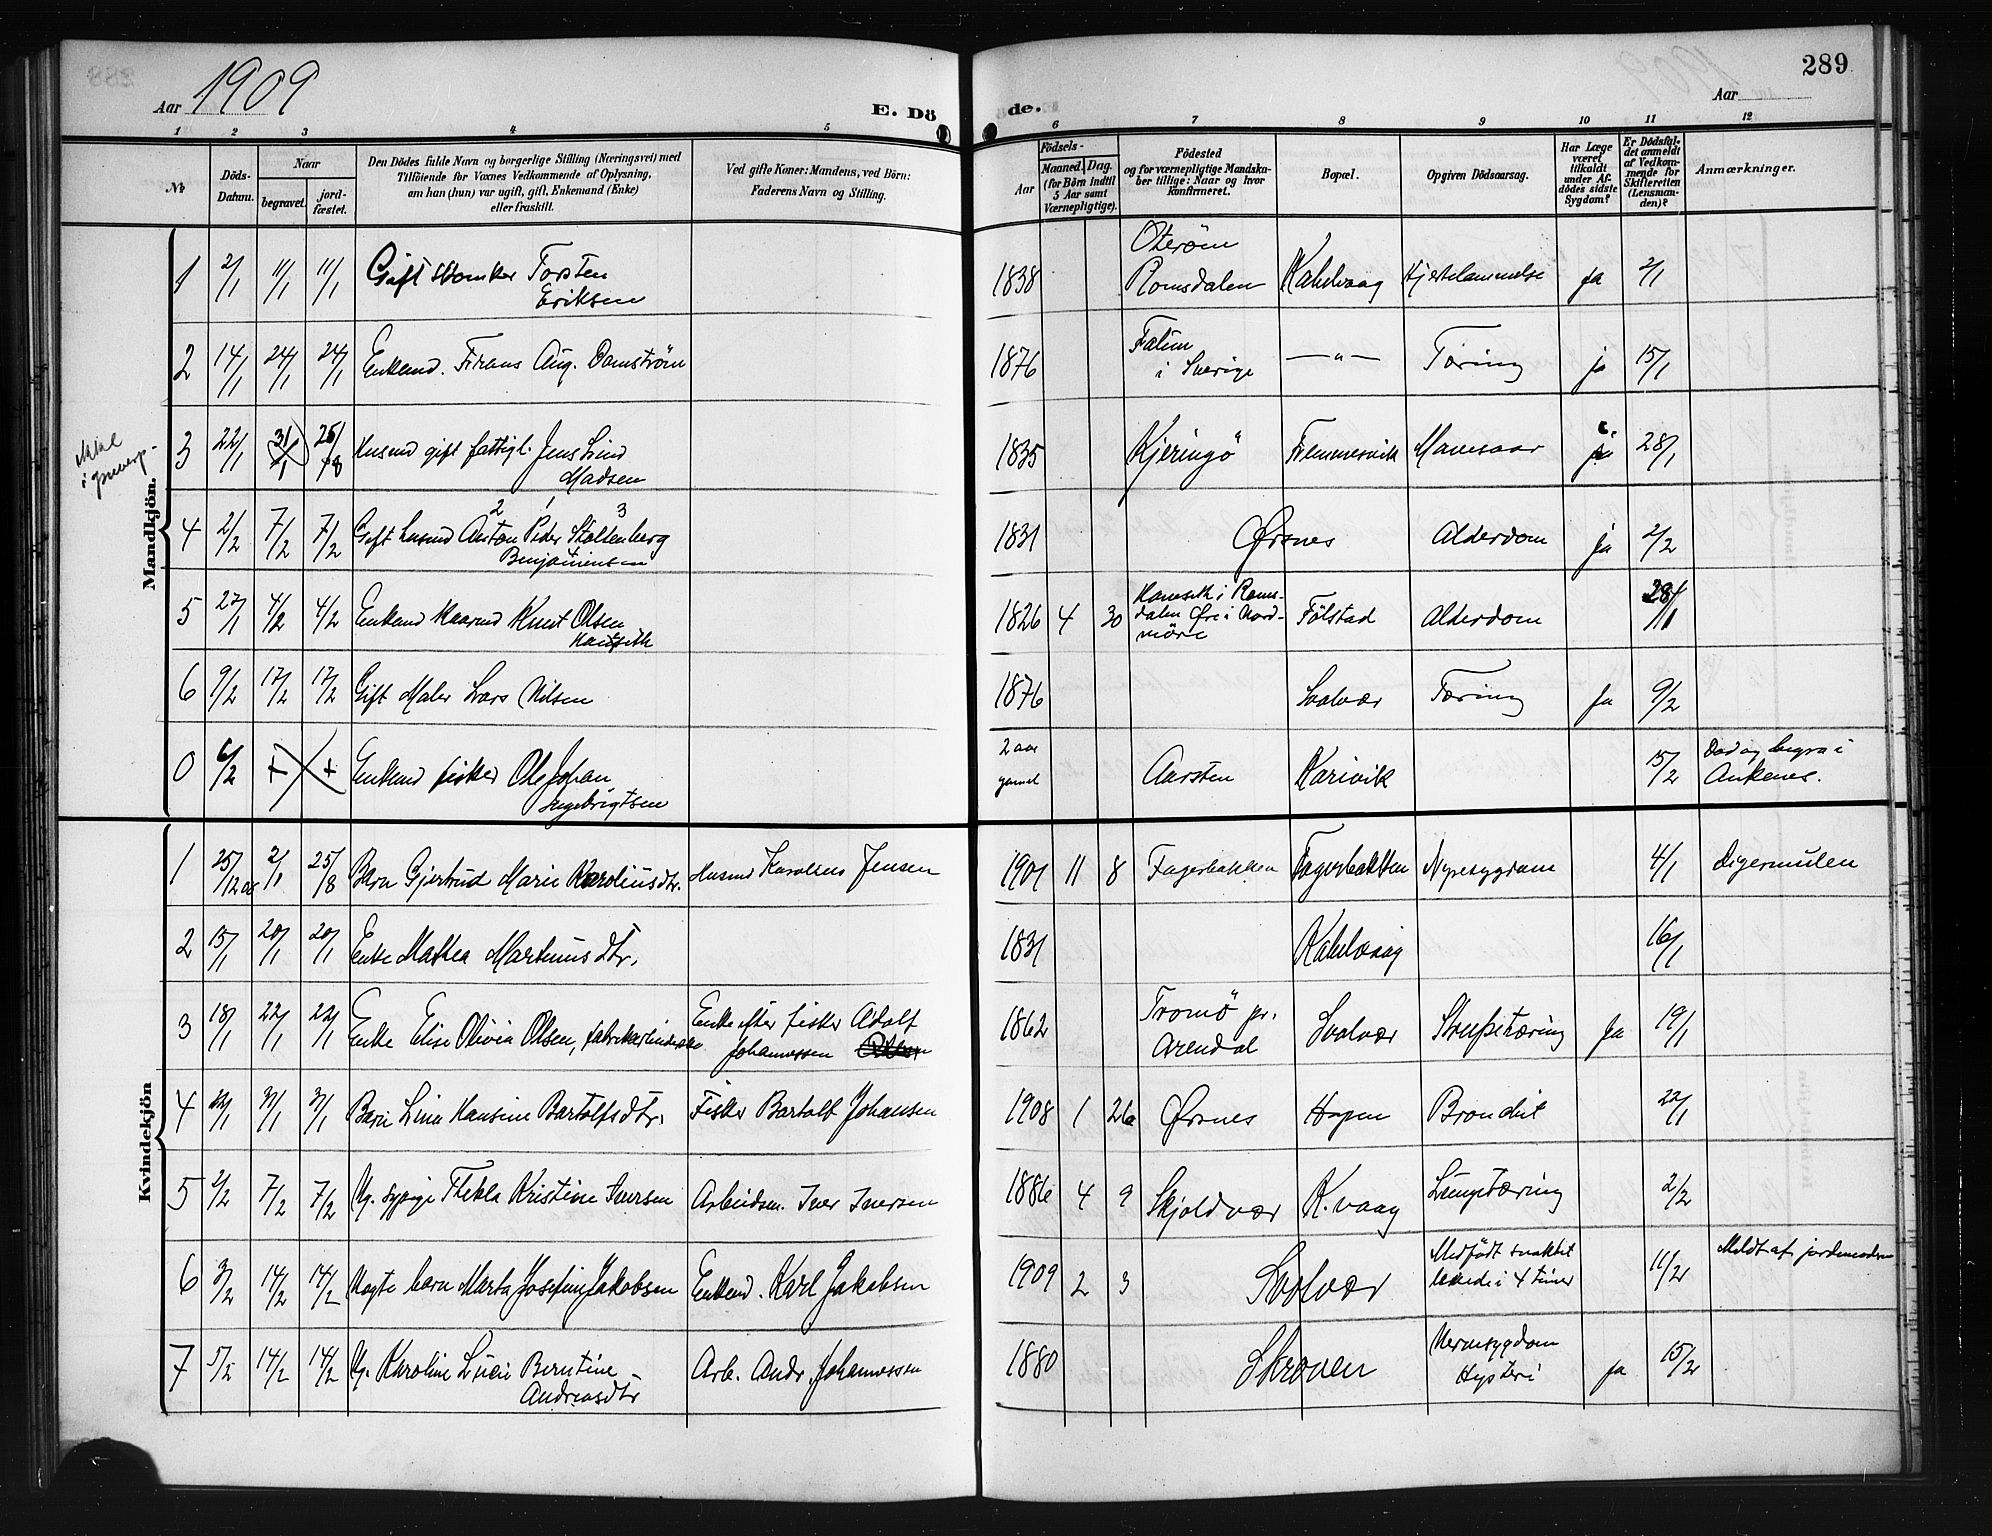 Aar 1909
E. Döde.
289
Aar
1 2 3 4 5 6 7 8 9 10 11 12
No
Döds-Datum.
Naar
begravet.
jordfæstet.
Den Dödes fulde Navn og borgerlige Stilling (Næringsvei) med
Tilföiende for Voxnes Vedkommende af Oplysning,
om han (hun) var ugift, gift, Enkemand (Enke)
eller fraskilt.
Ved gifte Koner: Mandens, ved Börn:
Faderens Navn og Stilling.
Födsels-
Aar
Maaned. Dag.
(for Börn indtil
5 Aar samt
Værnepligtige).
Födested
og for værnepligtige Mandskaber tillige: Naar og hvor
konfirmeret.
Bopæl.
Opgiven Dödsaarsag.
Har Læge
været
tilkaldt
under Afdödes sidste
Sygdom?
Er Dödsfaldet anmeldt
af Vedkommende for
Skifteretten
(Lensmanden)?
Anmærkninger.
Mandkjön.
1 2/1 11/1 11/1 Gift Torsten Eriksen 1838 Romsdalen Kabelvaag Hjertelammelse ja 2/1
2 14/1 24/1 24/1 Enkemd. Frans Aug. Damström 1876 Falun i Sverige —„— Tæring ja 15/1
ikke i
3 22/1 31/1 Husmd gift fattigl. Jens Lind Madsen 1835 Kjeringö 28/1
4 2/2 7/2 7/2 Gift husmd Anton Peder Stoltenberg Benjaminsen 2 1 3 1831 Ørsnes Alderdom ja 2/2
5 27/1 4/2 4/2 Enkemd Kaarmd Knut Olsen 1826 4 30 Romsdalen Øre i Nordmöre Fölstad Alderdom 28/1
6 9/2 17/2 17/2 Gift Maler Lars Nilsen 1876 Svolvær Tæring Ja 9/2
0 6/2 + + Enkemd fisker Ole Johan Ingebrigtsen 2 aar gammel Aarsten Karivik 15/2 Död og begra i Ankenes.
Kvindekjön
1 25/12 08 2/1 25/8 Barn Gjertrud Marie Karoliusdtr. Husmd Karolius Jensen 1901 11 8 Fagerbakken Fagerbakken Nyresygdom 4/1 Digermulen
2 15/1 20/1 20/1 Enke Mathea Martinusdtr. 1831 Kabelvaag 16/1
3 18/1 22/1 22/1 Enke Elise Olivia Olsen, Enke efter fisker Adolf Johannessen 1862 Tromö pr. Arendal Svolvær Strupetæring Ja 19/1
4 22/1 31/1 31/1 Barn Lina Hansine Bartolfsdtr. Fisker Bartolf Johansen 1908 1 26 Ørsnes Hopen Bronchit 22/1
5 2/2 7/2 7/2 Ug. sypige Thekla Kristine Iversen Arbeidsm. Iver Iversen 1886 4 9 Skjoldvær K.vaag Lungetæring 2/2
6 3/2 14/2 14/2 Ægte barn Marta Josefine Jakobsen Enkemd. Karl Jakobsen 1909 2 3 Svolvær Medfödt svakhet levede i 4 timer 11/2 Meldt af jordemoderen
7 5/2 14/2 14/2 Ug. Karoline Lucie Berntine Andreasdtr Arb. Andr. Johannessen 1880 Skroven Nervesygdom Hysteri ja 15/2